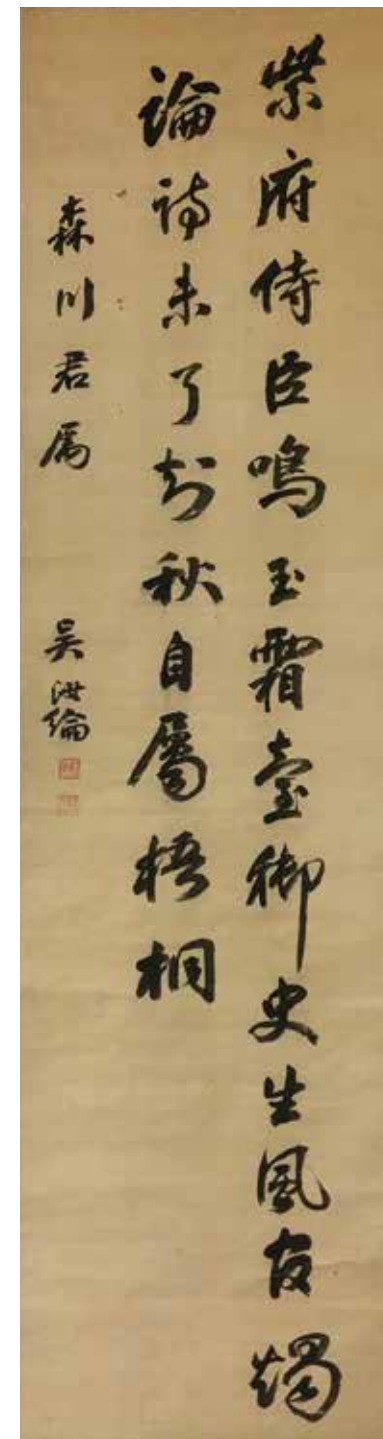 紫府侍臣鳴玉霜臺御史生風官燭
論詩未了知秋自屬梧桐
森川君属
吳汝綸